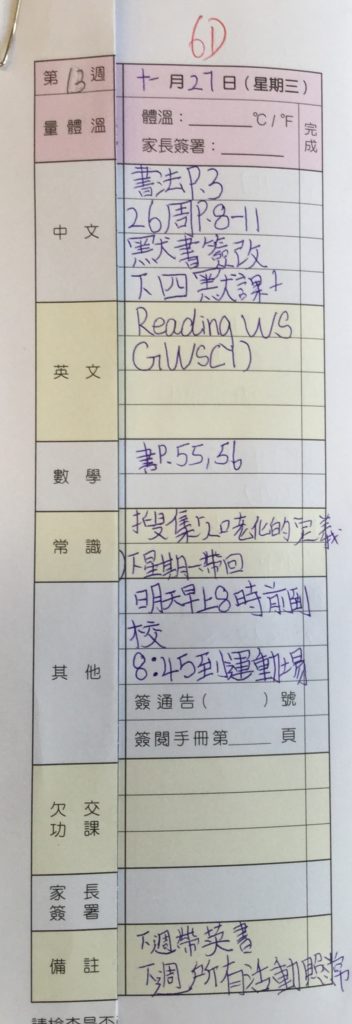 6D
第13週 十一月27日(星期三)
量體溫 體溫:______℃/℉ 完成
家長簽署:______
中文 書法P.3
26周P.8-11
默書簽改
下四默課十
英文 Reading WS
GWS(Y)
數學 書P.55,56
常識 搜集人口老化的定義
下星期一帶回
其他 明天早上8時前到
校
8:45到運動場
簽通告( )號
簽閱手冊第____頁
欠交功課
家長簽署
備註 下週帶英書
下週所有活動照常